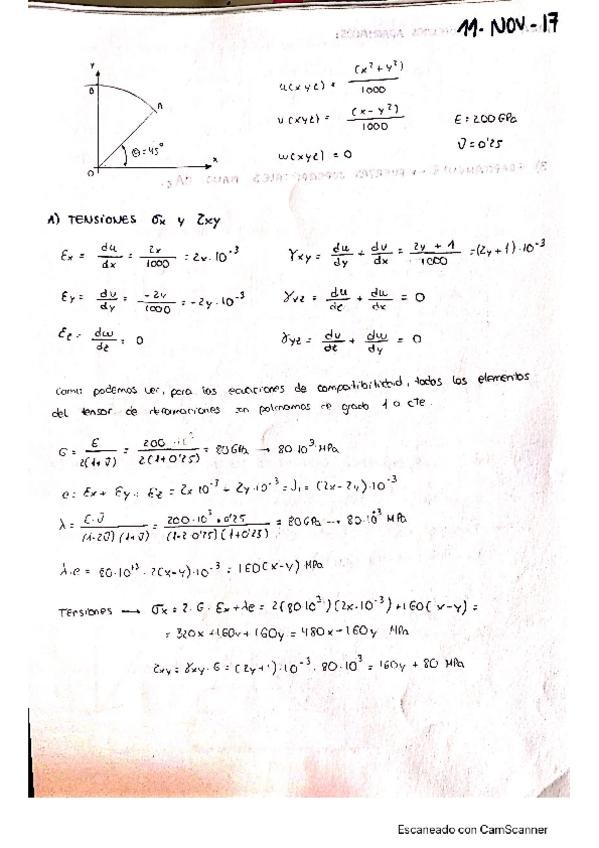 11-NOV-17
Y
B
A
Θ=45°
O
X
u(xyz) = (x² + y²) / 1000
v(xyz) = (x - y²) / 1000
w(xyz) = 0
E = 200 GPa
ν = 0'25
A) TENSIONES σx y τxy
εx = du/dx = 2x/1000 = 2x·10⁻³
γxy = du/dy + dv/dx = 2y + 1/1000 = (2y+1)·10⁻³
εy = dv/dy = -2y/1000 = -2y·10⁻³
γxz = du/dz + dw/dx = 0
εz = dw/dz = 0
γyz = dv/dz + dw/dy = 0
Como podemos ver, para las ecuaciones de compatibilidad, todos los elementos
del tensor de deformaciones son polinomios de grado 1 o cte.
G = E / 2(1+ν) = 200·10³ / 2(1+0'25) = 80 GPa → 80·10³ MPa
e = εx + εy + εz = 2x·10⁻³ - 2y·10⁻³ = J₁ = (2x-2y)·10⁻³
λ = E·ν / (1-2ν)(1+ν) = 200·10³·0'25 / (1-2·0'25)(1+0'25) = 80 GPa → 80·10³ MPa
λ·e = 80·10³·2(x-y)·10⁻³ = 160(x-y) MPa
Tensiones → σx = 2·G·εx + λe = 2(80·10³)(2x·10⁻³) + 160(x-y) =
= 320x + 160x + 160y = 480x - 160y MPa
τxy = γxy·G = (2y+1)·10⁻³·80·10³ = 160y + 80 MPa
Escaneado con CamScanner